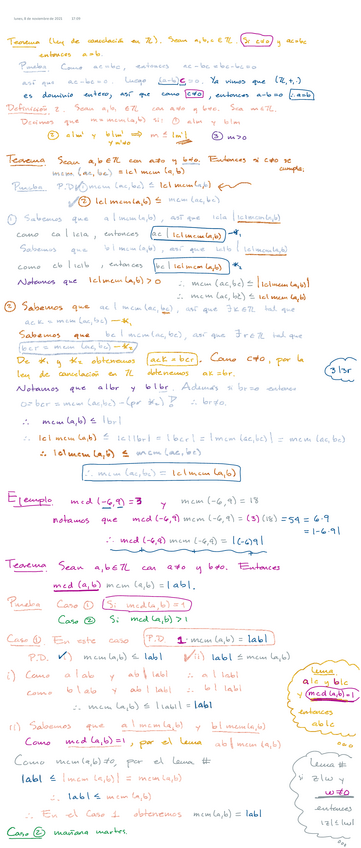 lunes, 8 de noviembre de 2021 17:05
Teorema (Ley de cancelación en ℤ). Sean a,b,c ∈ ℤ. Si c≠0 y ac=bc
entonces a=b.
Prueba Como ac=bc, entonces ac-bc=bc-bc=0
así que ac-bc=0. Luego (a-b)c=0. Ya vimos que (ℤ,+,·)
es dominio entero, así que como c≠0, entonces a-b=0 ∴ a=b
Definición 2. Sean a,b ∈ ℤ con a≠0 y b≠0. Sea m∈ℤ.
Decimos que m=mcm(a,b) si: ① a|m y b|m
② a|m' y b|m' ⟹ m ≤ |m'| ③ m>0
y m'≠0
Teorema Sean a,b∈ℤ con a≠0 y b≠0. Entonces si c≠0 se cumple:
mcm(ac,bc) = |c| mcm(a,b)
Prueba P.D. ① mcm(ac,bc) ≤ |c| mcm(a,b)
② |c| mcm(a,b) ≤ mcm(ac,bc)
① Sabemos que a|mcm(a,b), así que |c|a | |c|mcm(a,b)
como ca | |c|a, entonces ac | |c|mcm(a,b) *₁
Sabemos que b|mcm(a,b), así que |c|b | |c|mcm(a,b)
como cb | |c|b, entonces bc | |c|mcm(a,b) *₂
Notamos que |c|mcm(a,b) > 0 ∴ mcm(ac,bc) ≤ ||c|mcm(a,b)|
∴ mcm(ac,bc) ≤ |c| mcm(a,b)
② Sabemos que ac | mcm(ac,bc), así que ∃k∈ℤ tal que
ack = mcm(ac,bc) *₁
Sabemos que bc | mcm(ac,bc), así que ∃r∈ℤ tal que
bcr = mcm(ac,bc) *₂
De *₁ y *₂ obtenemos ack = bcr. Como c≠0, por la
ley de cancelación en ℤ obtenemos ak=br.
3|3r
Notamos que a|br y b|br. Además si br=0 entonces
0=bcr = mcm(ac,bc) (por *₂) ∴ br≠0.
∴ mcm(a,b) ≤ |br|
∴ |c| mcm(a,b) ≤ |c||br| = |bcr| = |mcm(ac,bc)| = mcm(ac,bc)
∴ |c| mcm(a,b) ≤ mcm(ac,bc)
∴ mcm(ac,bc) = |c| mcm(a,b)
Ejemplo mcd(-6,9)=3 y mcm(-6,9) = 18
notamos que mcd(-6,9) mcm(-6,9) = (3)(18) = 54 = 6·9
= |-6·9|
∴ mcd(-6,9) mcm(-6,9) = |(-6)9|
Teorema Sean a,b∈ℤ con a≠0 y b≠0. Entonces
mcd(a,b) mcm(a,b) = |ab|.
Prueba Caso ① Si mcd(a,b)=1
Caso ② Si mcd(a,b)>1
Caso ① En este caso P.D. 1·mcm(a,b) = |ab|
P.D. i) mcm(a,b) ≤ |ab| ii) |ab| ≤ mcm(a,b)
i) Como a|ab y ab||ab| ∴ a||ab|
como b|ab y ab||ab| ∴ b||ab|
∴ mcm(a,b) ≤ ||ab|| = |ab|
Lema
a|c y b|c
y mcd(a,b)=1
entonces
ab|c
ii) Sabemos que a|mcm(a,b) y b|mcm(a,b)
Como mcd(a,b)=1, por el lema ab|mcm(a,b)
Como mcm(a,b)≠0, por el lema #
|ab| ≤ |mcm(a,b)| = mcm(a,b)
∴ |ab| ≤ mcm(a,b)
∴ En el Caso 1 obtenemos mcm(a,b) = |ab|
Lema #
z|w y
w≠0
entonces
|z|≤|w|
Caso ② mañana martes.